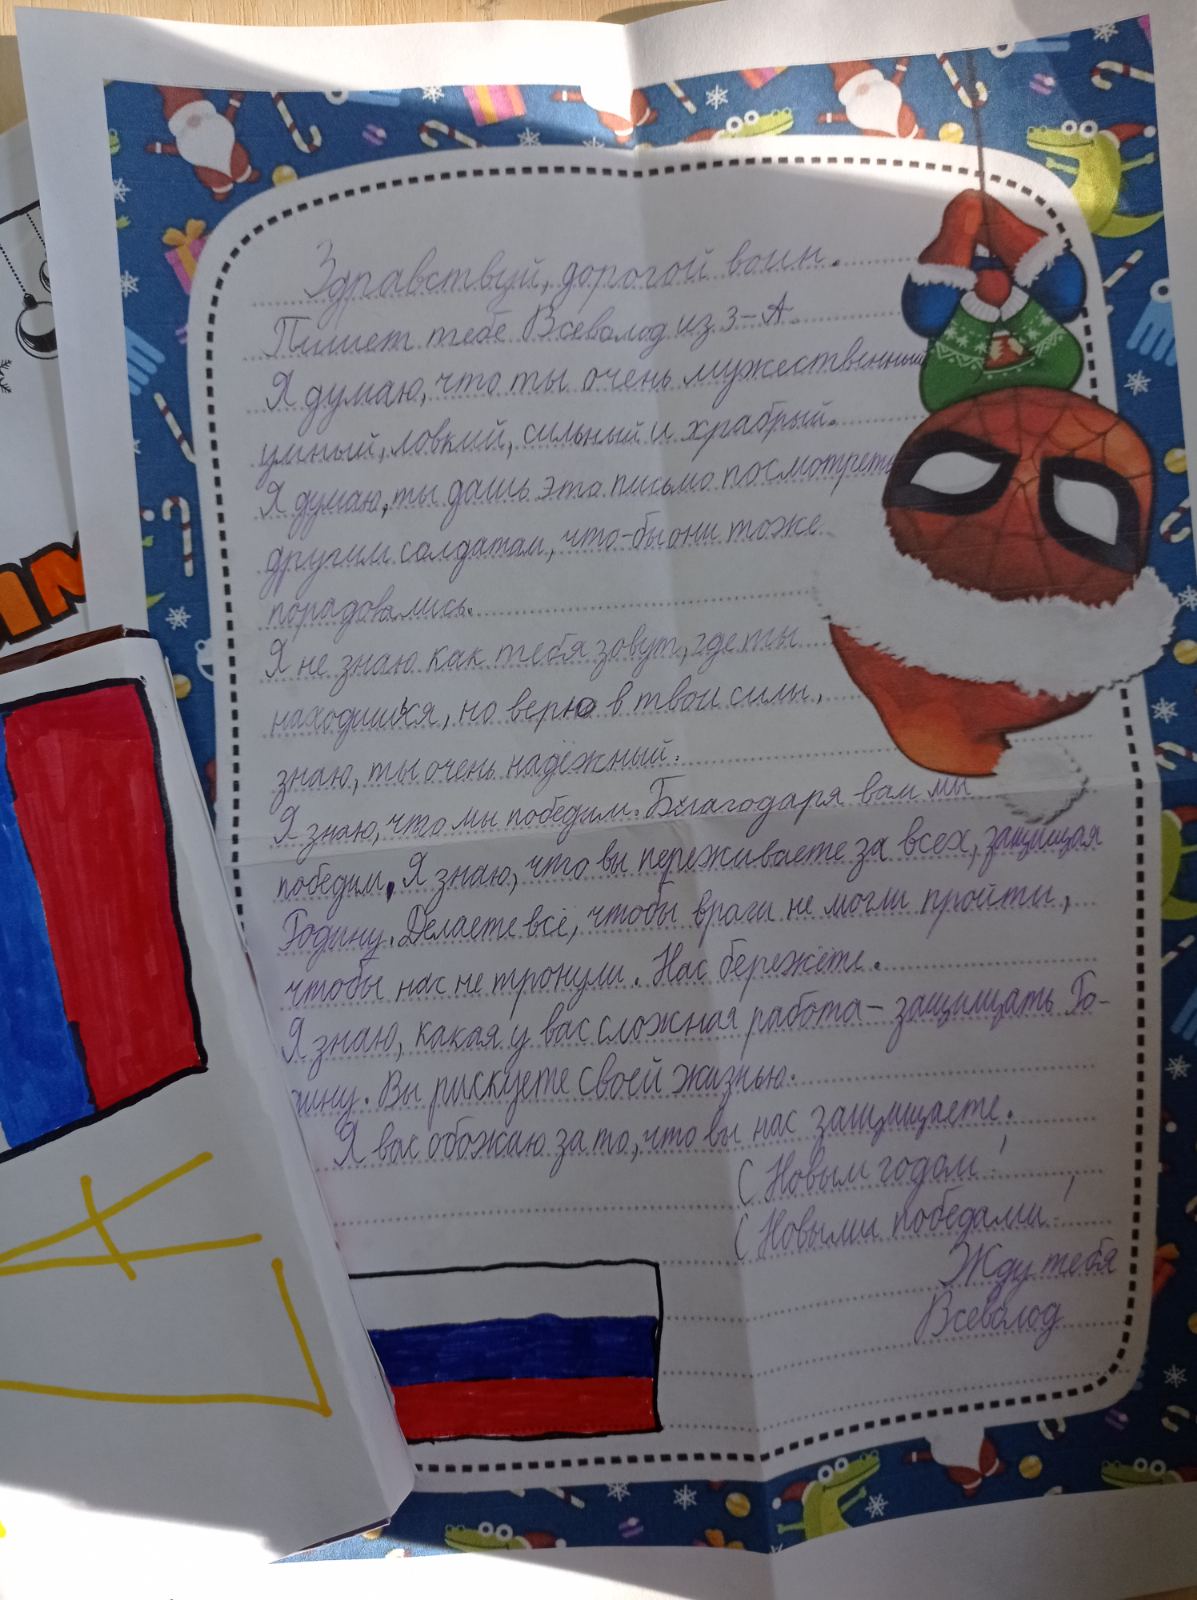 Здравствуй, дорогой воин.
Пишет тебе Всеволод из 3-А.
Я думаю, что ты очень мужественный
умный, ловкий, сильный и храбрый.
Я думаю, ты дашь это письмо посмотреть
другим солдатам, что-бы они тоже
порадовались.
Я не знаю как тебя зовут, где ты
находишься, но верю в твои силы,
знаю, ты очень надёжный.
Я знаю, что мы победим. Благодаря вам мы
победим. Я знаю, что вы переживаете за всех, защищая
Родину. Делаете всё, чтобы враги не могли пройти,
чтобы нас не тронули. Нас бережёте.
Я знаю, какая у вас сложная работа - защищать Ро-
дину. Вы рискуете своей жизнью.
Я вас обожаю за то, что вы нас защищаете.
С Новым годом!
С Новыми победами!
Жду тебя
Всеволод